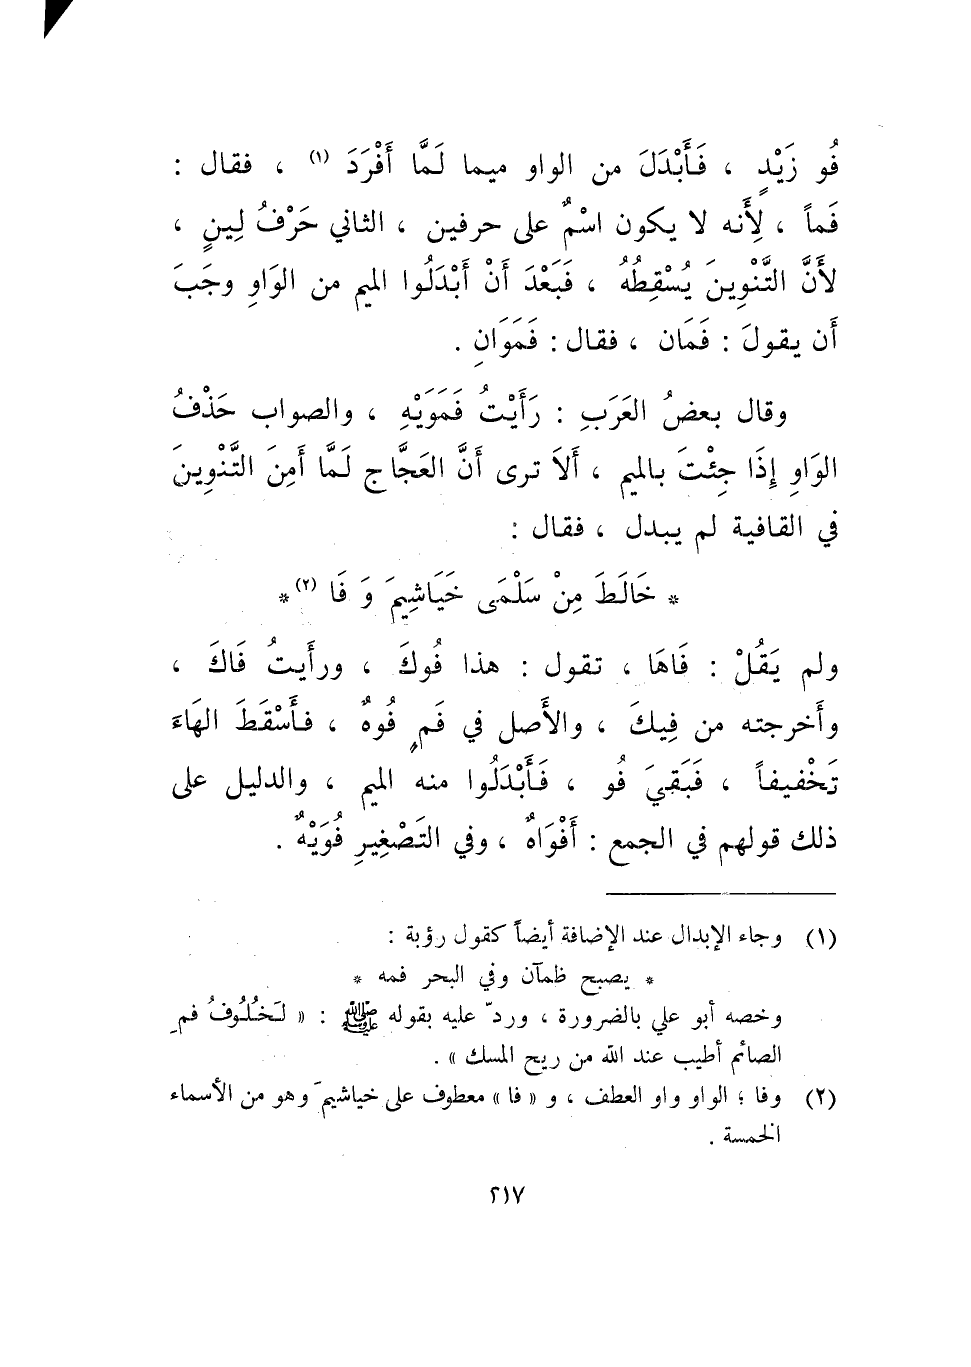 فُو زَيْدٍ ، فَأَبْدَلَ من الواو ميما لَمَّا أَفْرَدَ (١) ، فقال :
فَماً ، لِأَنه لا يكون اسْمٌ على حرفين ، الثاني حَرْفُ لِينٍ ،
لأَنَّ التَّنْوِينَ يُسْقِطُهُ ، فَبَعْدَ أَنْ أَبْدَلُوا الميم من الوَاوِ وجَبَ
أَن يقولَ : فَمَان ، فقال : فَمَوَانِ .
وقال بعضُ العَرَبِ : رَأَيْتُ فَمَوَيْهِ ، والصواب حَذْفُ
الوَاوِ إِذَا جِئْتَ بالميم ، أَلاَ ترى أَنَّ العَجَّاج لَمَّا أَمِنَ التَّنْوِينَ
في القافية لم يبدل ، فقال :
* خَالَطَ مِنْ سَلْمَى خَيَاشِيمَ وَ فَا (٢) *
ولم يَقُلْ : فَاهَا ، تقول : هذا فُوكَ ، ورأَيتُ فَاكَ ،
وأَخرجته من فِيكَ ، والأَصل في فَمٍ فُوهٌ ، فأَسْقَطَ الهَاءَ
تَخْفِيفاً ، فَبَقِيَ فُو ، فَأَبْدَلُوا منه الميم ، والدليل على
ذلك قولهم في الجمع : أَفْوَاهٌ ، وفي التَصْغِيرِ فُوَيْهٌ .
(١) وجاء الإبدال عند الإضافة أيضاً كقول رؤبة :
* يصبح ظمآن وفي البحر فمه *
وخصه أبو علي بالضرورة ، وردّ عليه بقوله ﷺ : « لَخُلُوفُ فمِ
الصائم أطيب عند الله من ريح المسك » .
(٢) وفا ؛ الواو واو العطف ، و « فا » معطوف على خياشيمَ وهو من الأسماء
الخمسة .
٢١٧